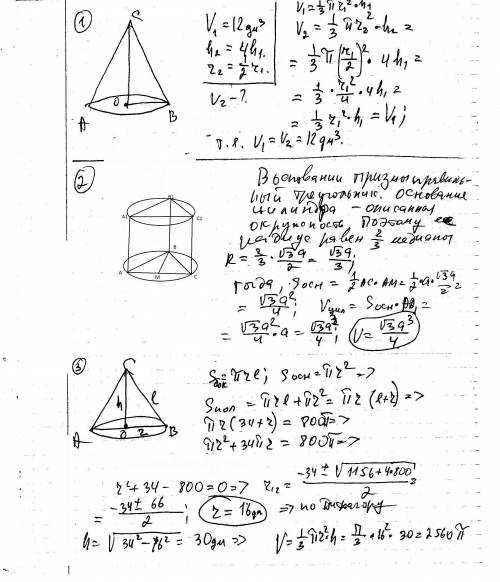 ①
C
A
O
B
V₁ = 12 дм³
h₂ = 4h₁
r₂ = 1/2 r₁
V₂ - ?
V₁ = 1/3 π r₁² · h₁
V₂ = 1/3 π r₂² · h₂ =
= 1/3 π (r₁/2)² · 4h₁ =
= 1/3 · r₁²/4 · 4h₁ =
= 1/3 r₁² · h₁ = V₁;
т.е. V₁ = V₂ = 12 дм³.
②
B1
A1
C1
B
A
M
C
В основании призмы правиль-
ный треугольник. Основание
цилиндра - описанная
окружность, поэтому ее
радиус равен 2/3 медианы
R = 2/3 · √3a/2 = √3a/3;
тогда, Sосн = 1/2 AC · AM = 1/2 · a · √3a/2 =
= √3a²/4; Vцил = Sосн · BB₁ =
= √3a²/4 · a = √3a³/4; V = √3a³/4
③
C
h
l
A
O
r
B
Sбок = πrl; Sосн = πr² =>
Sпол = πrl + πr² = πr (l + r) =>
πr (34 + r) = 800π =>
πr² + 34πr = 800π =>
r² + 34 - 800 = 0 => r₁,₂ = -34 ± √1156 + 4·800 / 2 =
= -34 ± 66 / 2; r = 16 дм => по Пифагору
h = √34² - 16² = 30 дм => V = 1/3 πr²·h = π/3 · 16² · 30 = 2560π